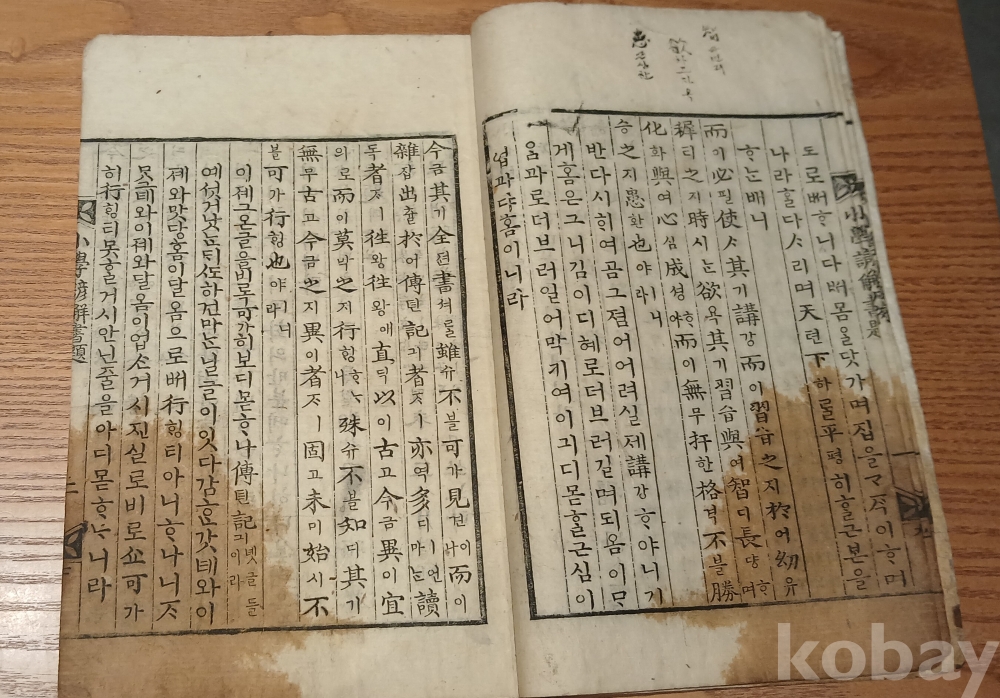 도로배ᄒᆞ니다배몸을닷가며집을ᄀᆞᄌᆞ기ᄒᆞ며
나라ᄒᆞᆯ다ᄉᆞ리며天텬下하ᄅᆞᆯ平평히ᄒᆞᆯ근본을
ᄒᆞᄂᆞᆫ배니
而이必필使ᄉᆞ其기講강而이習습之지於어幼유
穉티之지時시ᄂᆞᆫ欲욕其기習습與여智디長댱ᄒᆞ며
化화與여心심成셩ᄒᆞ야而이無무扞한格격不블勝
승之지患환也야ㅣ니
반다시ᄒᆞ여곰그졈어어려실제講강ᄒᆞ야니기
게홈은그니김이디혜로더브러길며되옴이ᄆᆞ
음과로더브러일어막키여이긔디몯ᄒᆞᆯ근심이
업과댜홈이니라
今금其기全젼書셔ᄅᆞᆯ雖슈不블可가見견이나而이
雜잡出츌於어傳뎐記긔者쟈ㅣ亦역多다ㅣ언마ᄂᆞᆫ讀
독者쟈ㅣ往왕往왕애直딕以이古고今금異이宜
의로而이莫막之지行ᄒᆡᆼᄒᆞᄂᆞ니殊슈不블知디其기
無무古고今금之지異이者쟈ㅣ固고未미始시不
블可가行ᄒᆡᆼ也야ㅣ니라
이졔그온글을비록可가히보디몯ᄒᆞ나傳뎐記긔녯글들이라
예섯거낫ᄂᆞᆫᄃᆡᄯᅩ하건마ᄂᆞᆫ닐글이잇다감ᄒᆞᆫ갓녜와이
졔와맛당홈이달옴으로ᄡᅥ行ᄒᆡᆼ티아니ᄒᆞ나니ᄌᆞ
못녜와이졔와달옴이업ᄉᆞᆫ거시진실로비로쇼可가
히行ᄒᆡᆼ티못ᄒᆞᆯ거시안닌줄을아디몯ᄒᆞᄂᆞ니라
小學諺解書題 二
kobay